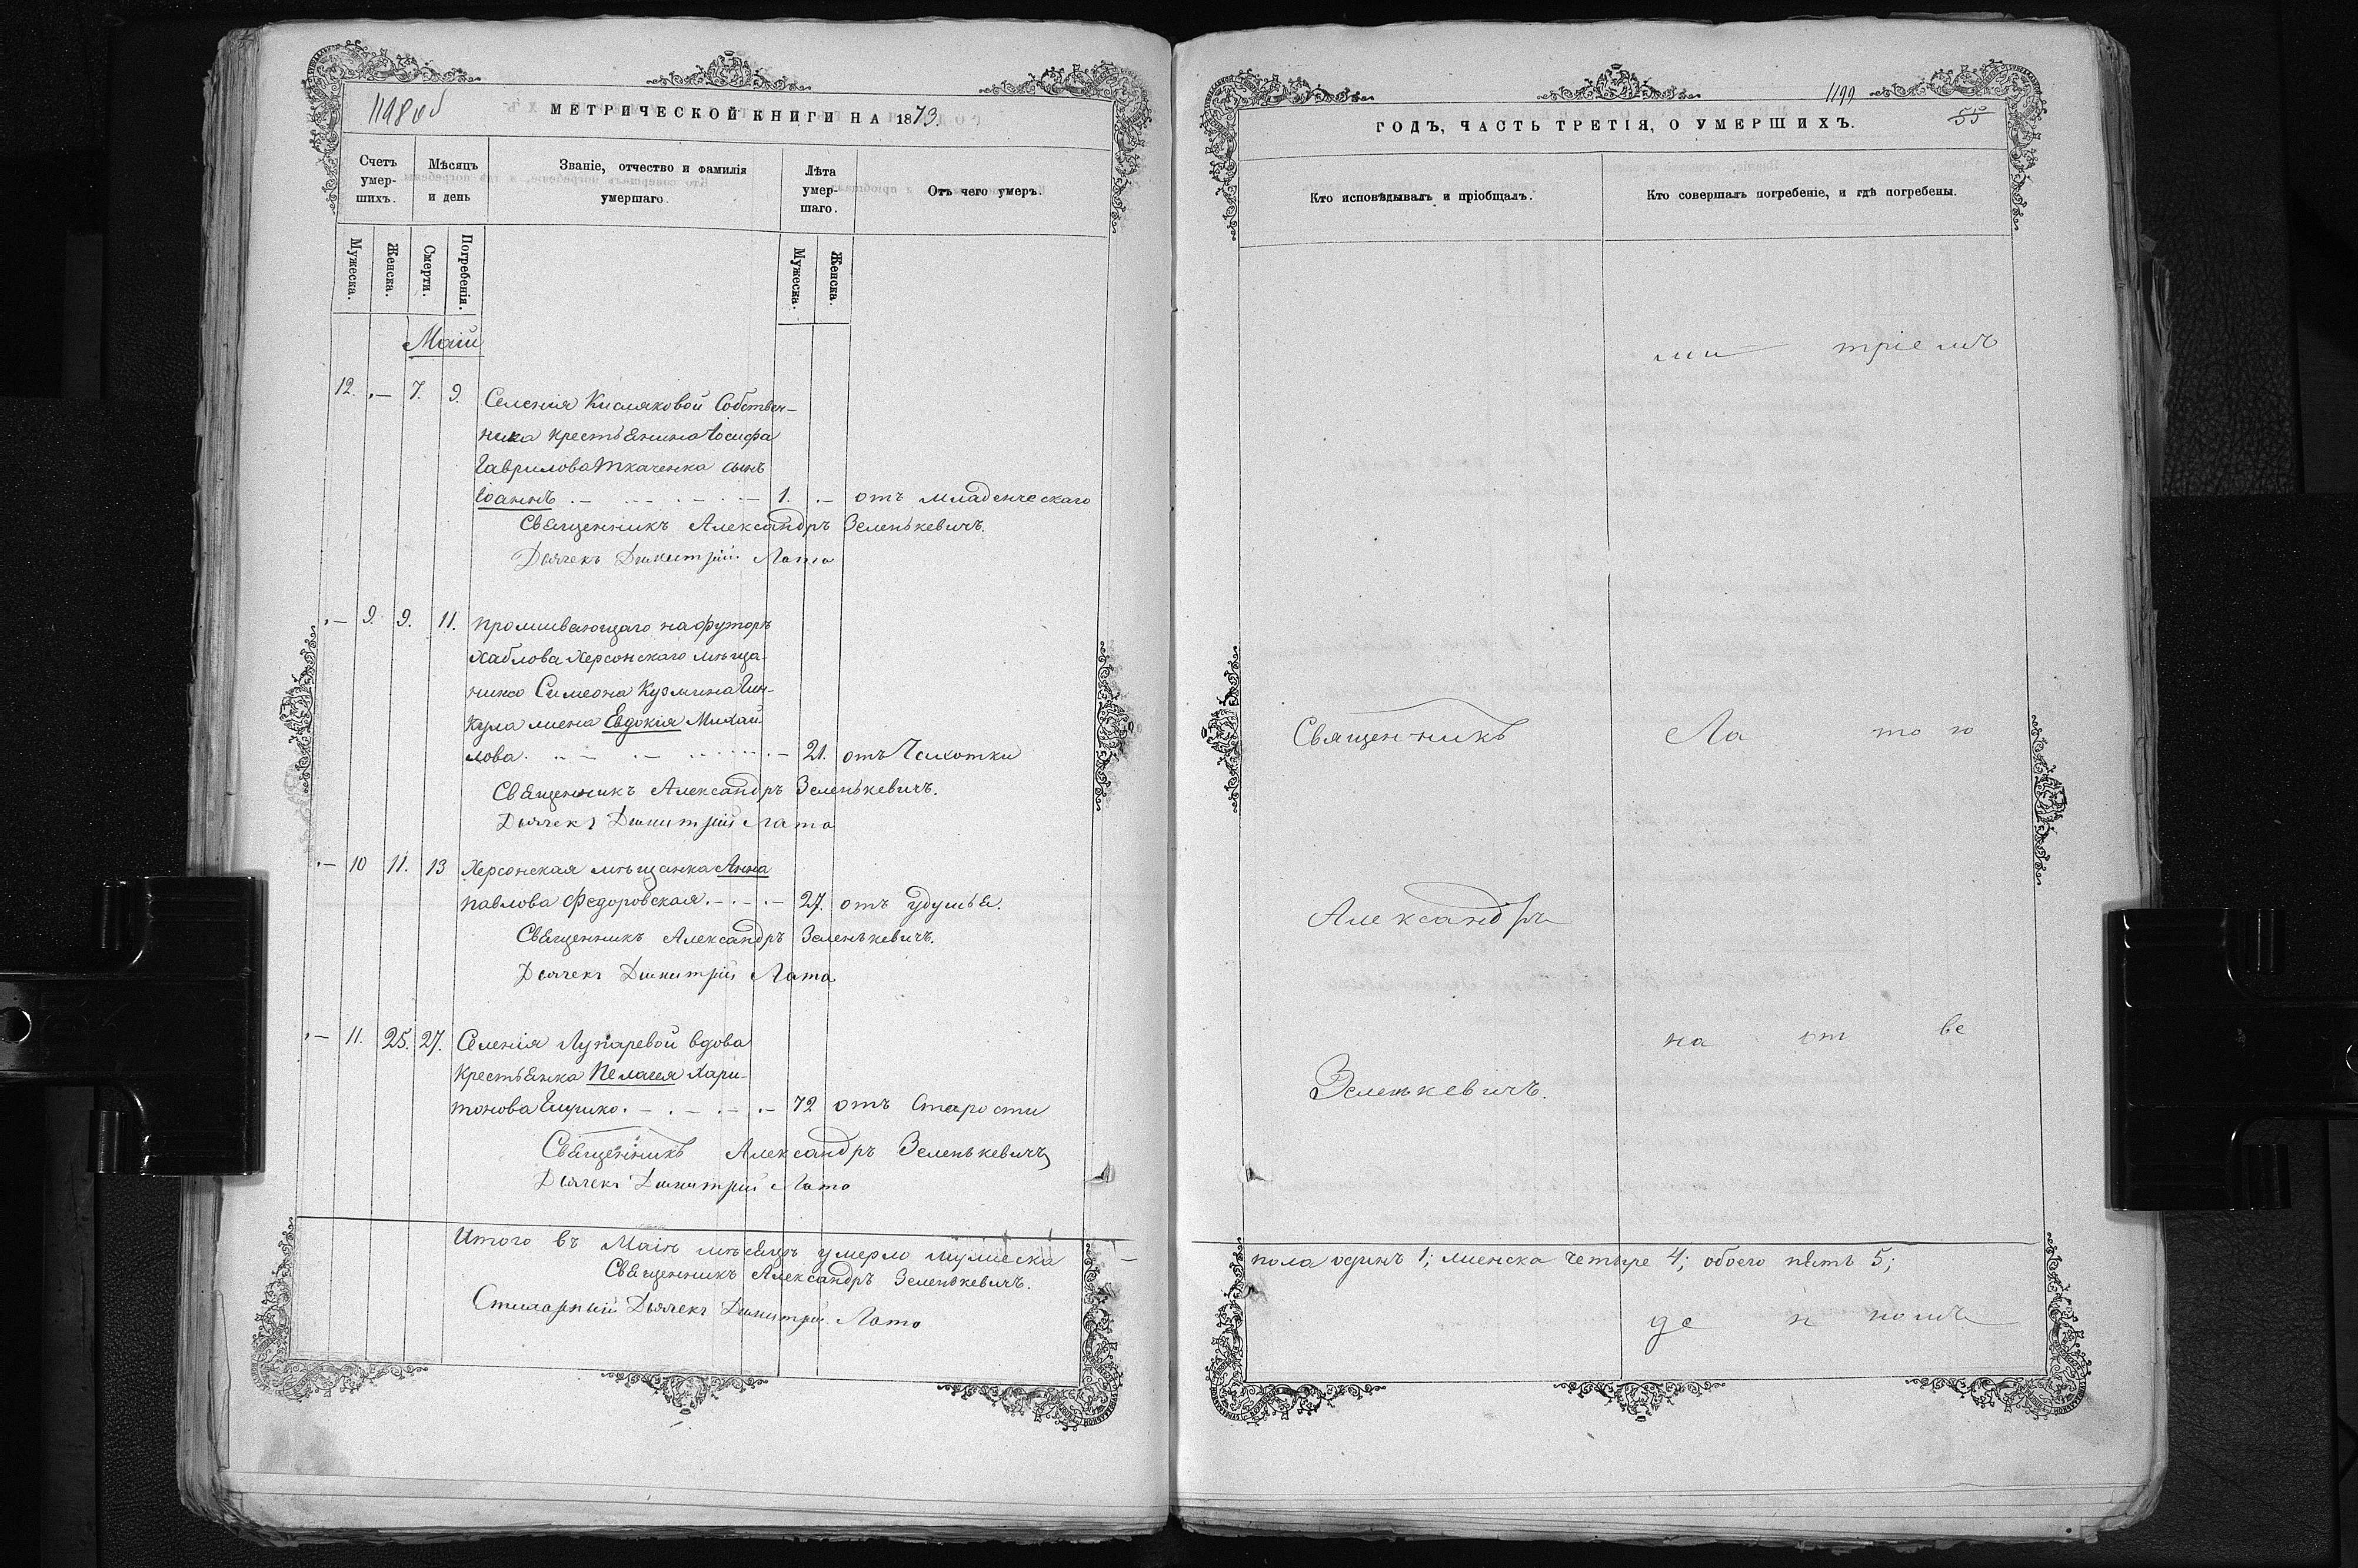 1198 об
МЕТРИЧЕСКОЙ КНИГИ НА 1873.
Счетъ умер-шихъ.
Мѣсяцъ и день
Званіе, отчество и фамилія умершаго.
Лѣта умер-шаго.
Отъ чего умеръ.
Мужеска.
Женска.
Смерти.
Погребенія.
Мужеска.
Женска.
Маій
12. — 7. 9. Селенія Кисляковой Собствен-
ника крестьянина Іосифа
Гаврилова Ткаченка сынъ
Іоаннъ 1. — отъ младенческаго
Священникъ Александръ Зеленькевичъ.
Дьячекъ Димитрій Лата
— 9. 9. 11. проживающаго на футорѣ
Хаблова Херсонскаго мѣща-
нина Симеона Кузмина
жена Евдокія Михай-
лова 21. отъ Чахотки
Священникъ Александръ Зеленькевичъ.
Дьячекъ Димитрій Лата
— 10 11. 13 Херсонская мѣщанка Анна
Павлова Федоровская 27. отъ удушья.
Священникъ Александръ Зеленькевичъ.
Дьячекъ Димитрій Лата
— 11. 25. 27. Селенія Лупаревой вдова
крестьянка Пелагея Хари-
тонова 72 отъ Старости
Священникъ Александръ Зеленькевичъ
Дьячекъ Димитрій Лата
Итого въ Маіѣ мѣсяцѣ умерло мужеска
Священникъ Александръ Зеленькевичъ.
Стихарный Дьячекъ Димитрій Лата
1199
55
ГОДЪ, ЧАСТЬ ТРЕТІЯ, О УМЕРШИХЪ.
Кто исповѣдывалъ и пріобщалъ.
Кто совершалъ погребеніе, и гдѣ погребены.
ми тріемъ
Священникъ
Ла тою
Александръ
на от ве
Зеленькевичъ.
пола одинъ 1; женска четыре 4; обоего пять 5;
де н номъ